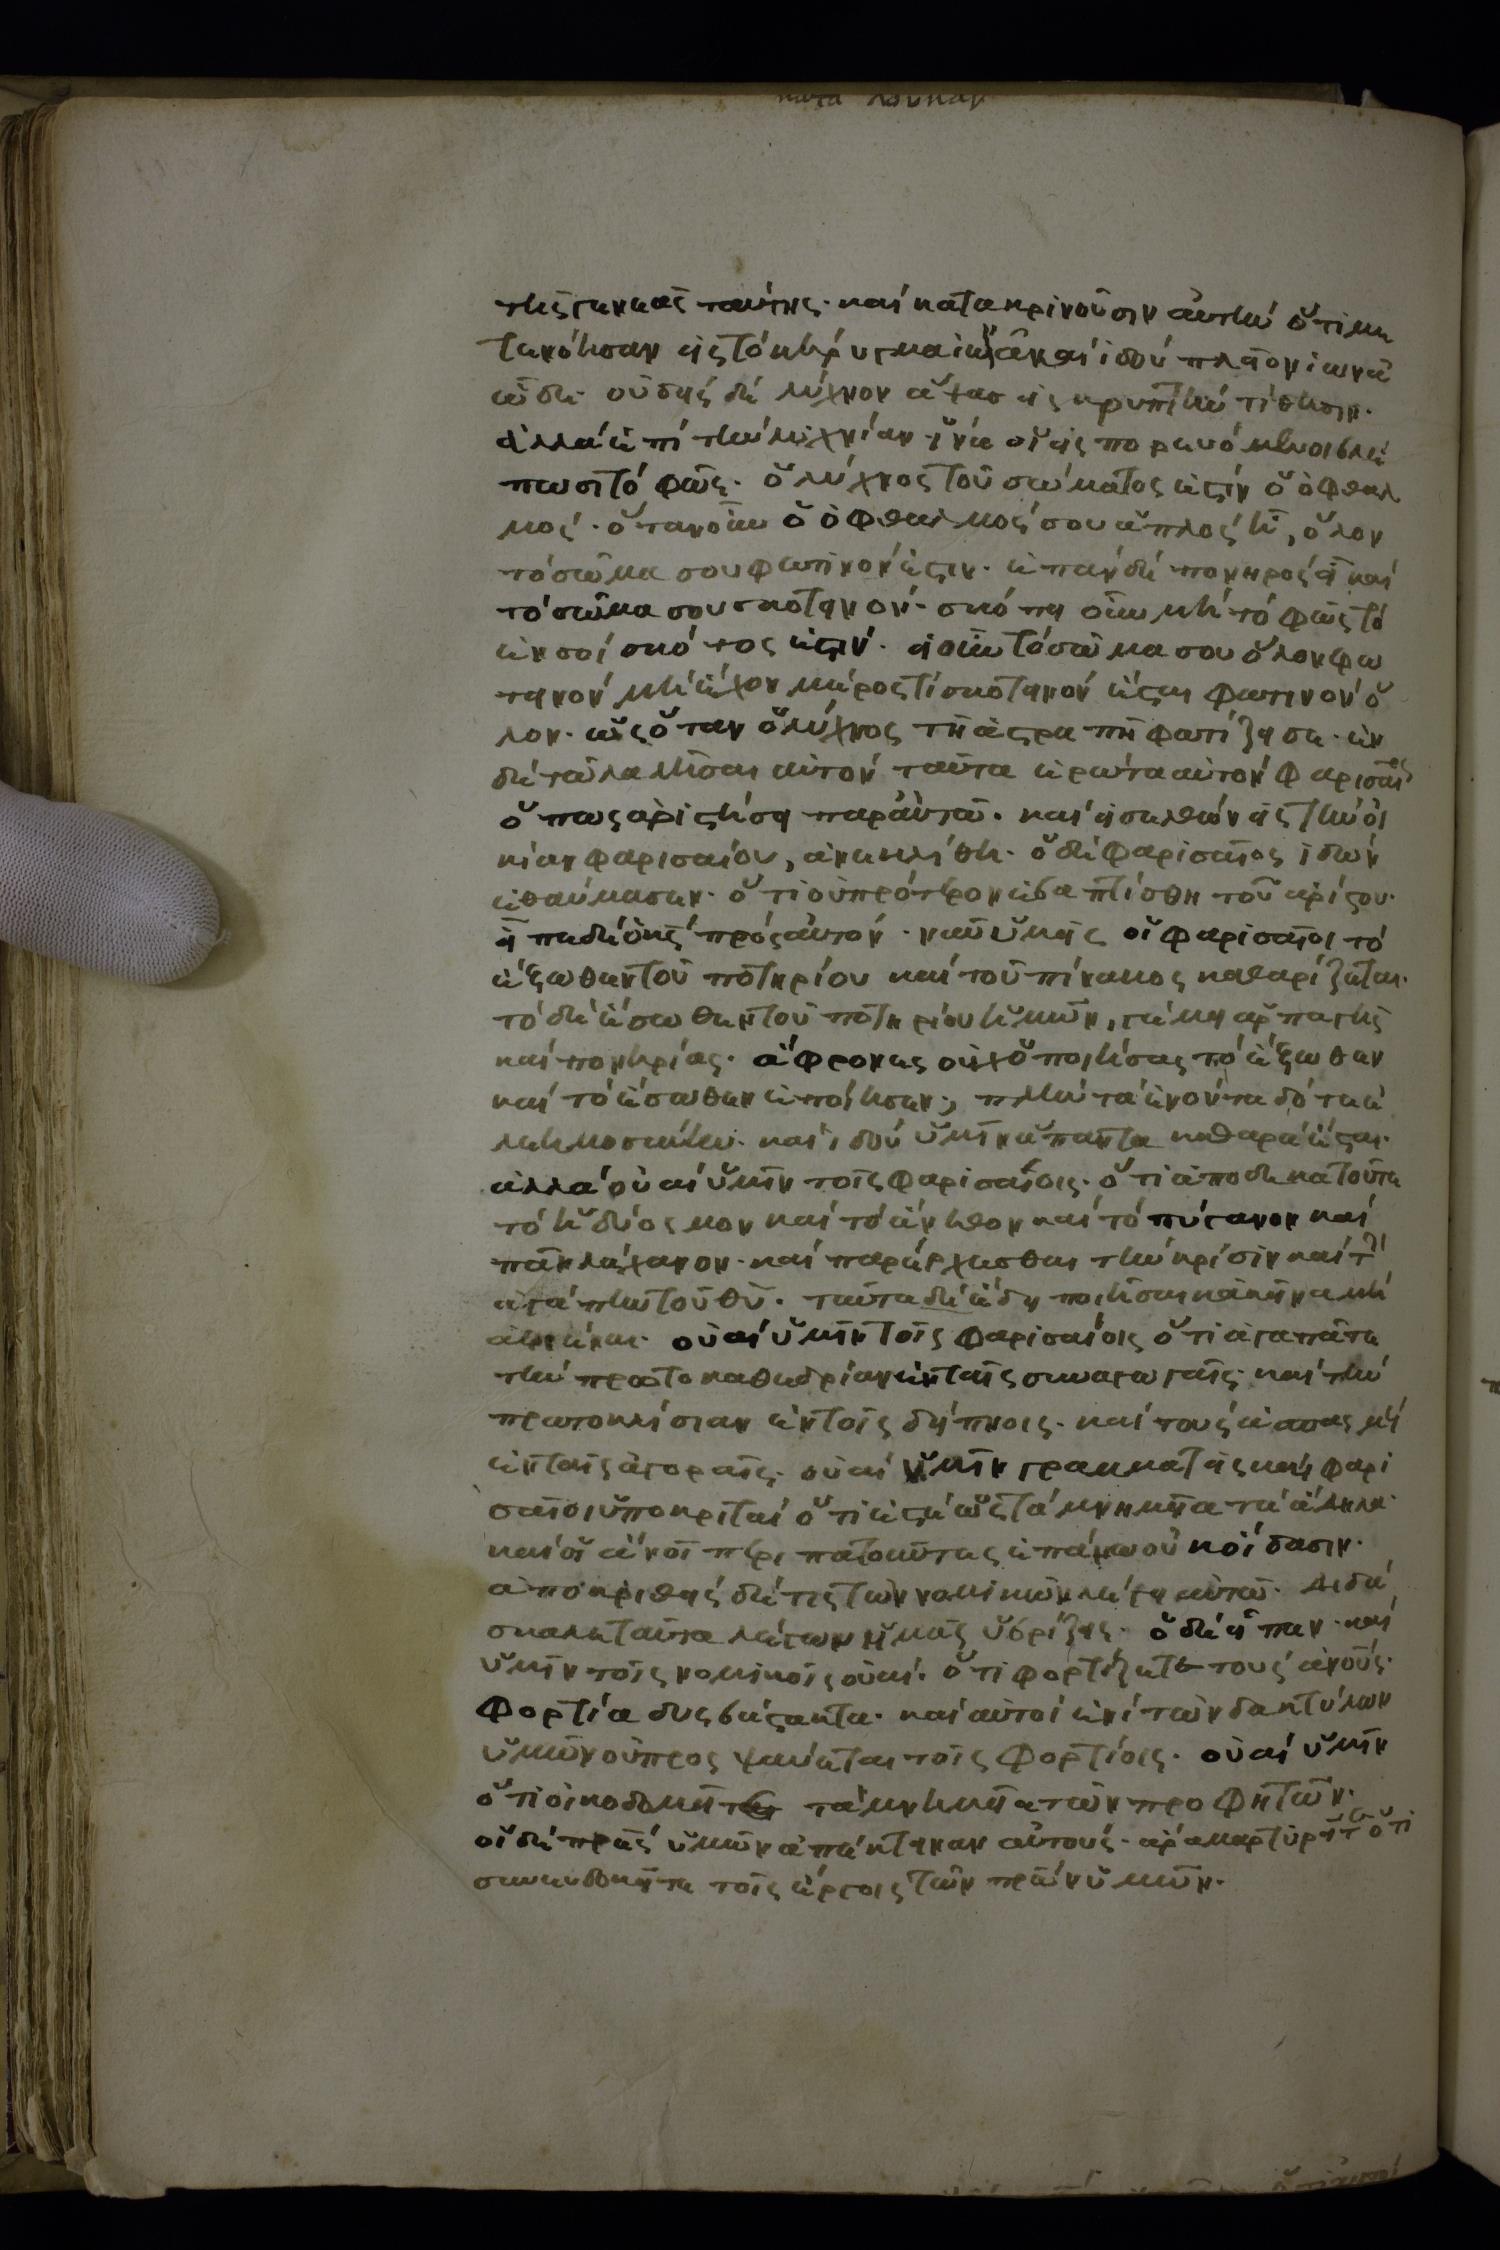 κατα λουκαν
τῆς γενεᾶς ταύτης· καὶ κατακρινοῦσιν αὐτὴν ὅτι με
τενόησαν εἰς τὸ κήρυγμα ἰωνᾶ καὶ ἰδοὺ πλεῖον ἰωνᾶ
ὧδε· οὐδεὶς δὲ λύχνον ἅψας εἰς κρυπτὴν τίθησιν·
ἀλλὰ ἐπὶ τὴν λυχνίαν· ἵνα οἱ εἰσπορευόμενοι βλέ
πωσι τὸ φῶς· ὁ λύχνος τοῦ σώματος ἐστὶν ὁ ὀφθαλ
μός· ὅταν οὖν ὁ ὀφθαλμός σου ἁπλοῦς ἦ, ὅλον
τὸ σῶμα σου φωτινόν ἐστιν· ἐπὰν δὲ πονηρός ἦ καὶ
τὸ σῶμα σου σκοτεινόν· σκόπει οὖν μὴ τὸ φῶς τὸ
ἐν σοὶ σκότος ἐστίν· εἰ οὖν τὸ σῶμα σου ὅλον φω
τεινόν μὴ ἔχον μέρος τὶ σκοτεινόν ἔσται φωτεινόν ὅ
λον· ὡς ὅταν ὁ λύχνος τῆ ἀστραπῆ φωτίζη σε· ἐν
δὲ τῶ λαλῆσαι αὐτὸν ταῦτα ἐρωτα αὐτὸν φαρισαῖος
ὅπως ἀριστήση παρ' αὐτῶ· καὶ εἰσελθὼν εἰς τὴν οἰ
κίαν φαρισαίου, ἀνεκλίθη· ὁ δὲ φαρισαῖος ἰδὼν
ἐθαύμασεν· ὅτι οὐ πρότερον ἐβαπτίσθη τοῦ ἀρίστου·
εἶπε δὲ ὁ κς πρὸς αὐτόν· νῦν ὑμεῖς οἱ φαρισαῖοι τὸ
ἔξωθεν τοῦ ποτηρίου καὶ τοῦ πίνακος καθαρίζεται·
τὸ δὲ ἔσωθεν τοῦ ποτηρίου ὑμῶν, γέμει ἁρπαγῆς
καὶ πονηρίας· ἄφρονες οὐχ ὁ ποιήσας τὸ ἔξωθεν
καὶ τὸ ἔσωθεν ἐποίησεν; πλὴν τὰ ἐνόντα δότε ἐ
λεημοσύνην· καὶ ἰδοὺ ὑμῖν ἅπαντα καθαρὰ ἔσται·
ἀλλὰ οὐαὶ ὑμῖν τοῖς φαρισαίοις· ὅτι ἀποδεκατοῦτε
τὸ ἡδύοσμον καὶ τὸ ἄνηθον καὶ τὸ πύγανον καὶ
πᾶν λάχανον· καὶ παρέρχεσθαι τὴν κρίσιν καὶ τὴν
ἀγάπην τοῦ θυ· ταῦτα δὲ ἔδει ποιῆσαι κἀκεῖνα μὴ
ἀφιέναι· οὐαὶ ὑμῖν τοῖς φαρισαίοις ὅτι ἀγαπᾶτε
τὴν πρωτοκαθεδρίαν ἐν ταῖς συναγωγαῖς· καὶ τὴν
πρωτοκλισίαν ἐν τοῖς δείπνοις· καὶ τοὺς
ἐν ταῖς ἀγοραῖς· οὐαὶ ὑμῖν γραμματεῖς καὶ φαρι
σαῖοι ὑποκριταὶ ὅτι ἐστὲ ὡς τὰ μνημεῖα τὰ ἄδηλα·
καὶ οἱ ἄνοι περιπατοῦντες ἐπάνω οὐκ οἴδασιν·
ἀποκριθεὶς δέ τις τῶν νομικῶν λέγει αὐτῶ· διδά
σκαλε ταῦτα λέγων ἡμᾶς ὑβρίζεις· ὁ δὲ εἶπεν· καὶ
ὑμῖν τοῖς νομικοῖς οὐαί· ὅτι φορτίζετε τοὺς ἀνους·
φορτία δυσβάστακτα· καὶ αὐτοὶ ἑνὶ τῶν δακτύλων
ὑμῶν οὐ προσψαύεται τοῖς φορτίοις· οὐαὶ ὑμῖν
ὅτι οἰκοδομεῖτε τὰ μνημεῖα τῶν προφητῶν·
οἱ δὲ πρες ὑμῶν ἀπέκτειναν αὐτούς· ἄρα μαρτυρεῖτε ὅτι
συνευδοκεῖτε τοῖς ἔργοις τῶν πρων ὑμῶν·